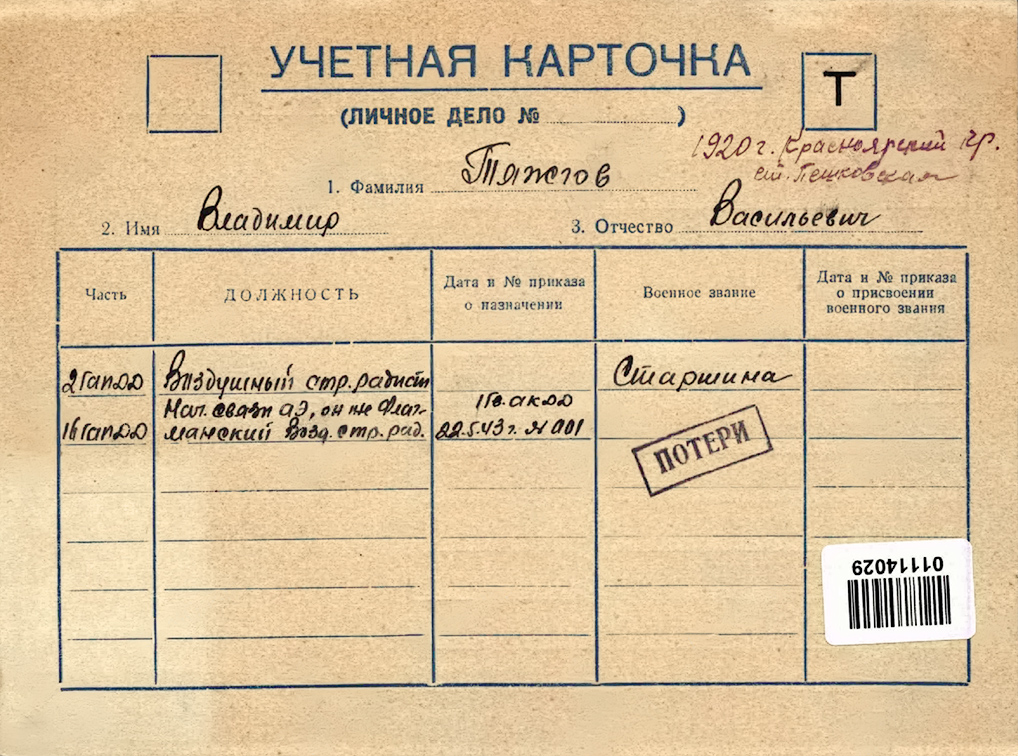 УЧЕТНАЯ КАРТОЧКА
Т
(ЛИЧНОЕ ДЕЛО № )
1920 г. Красноярский кр.
ст. Пешковская
1. Фамилия Тяжгов
2. Имя Владимир
3. Отчество Васильевич
Часть
ДОЛЖНОСТЬ
Дата и № приказа
о назначении
Военное звание
Дата и № приказа
о присвоении
военного звания
2 Гап ДД Воздушный стр. радист Старшина
Нач. связи АЭ, он же Флаг- 1 Гв. ак ДД
16 Гап ДД манский возд. стр. рад. 22.5.43 г. № 001
ПОТЕРИ
01114029